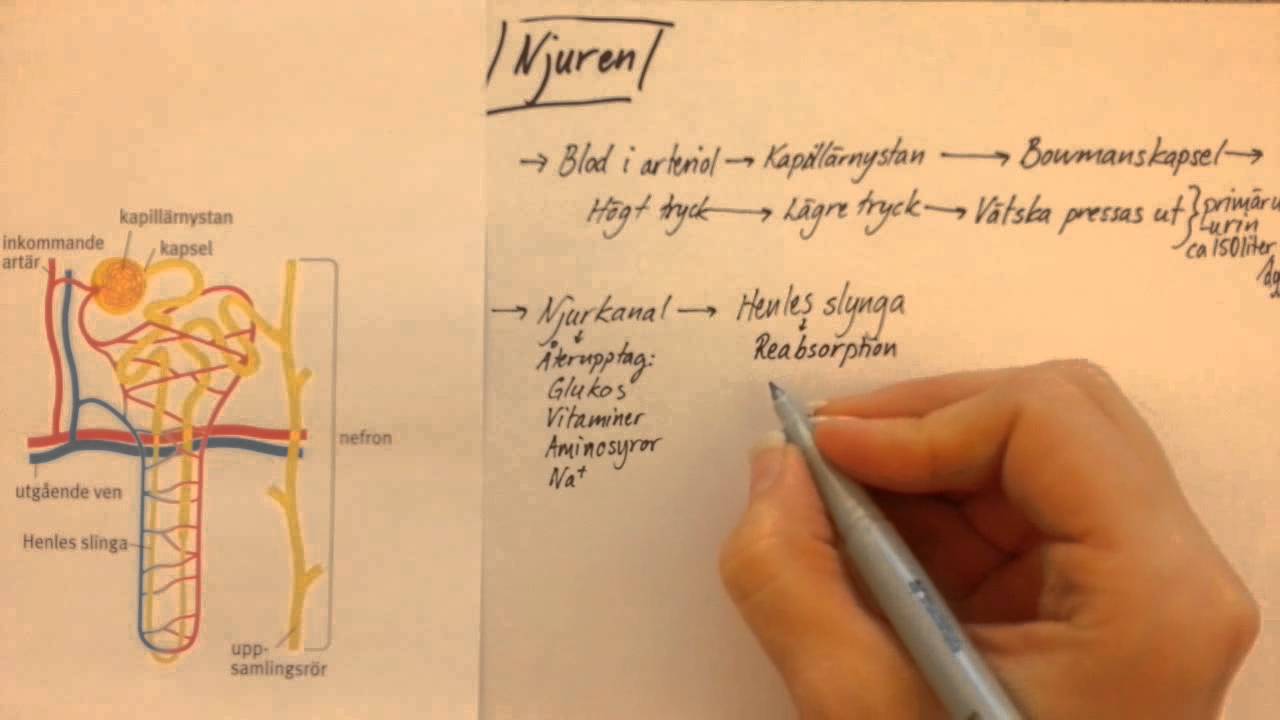 Njuren
→ Blod i arteriol → Kapillärnystan → Bowmanskapsel →
Högt tryck → Lägre tryck → Vätska pressas ut } primäru
urin
ca 150 liter
→ Njurkanal → Henles slynga
Återupptag:
Glukos
Vitaminer
Aminosyror
Na⁺
Reabsorption
kapillärnystan
inkommande
artär
kapsel
nefron
utgående ven
Henles slinga
upp-
samlingsrör